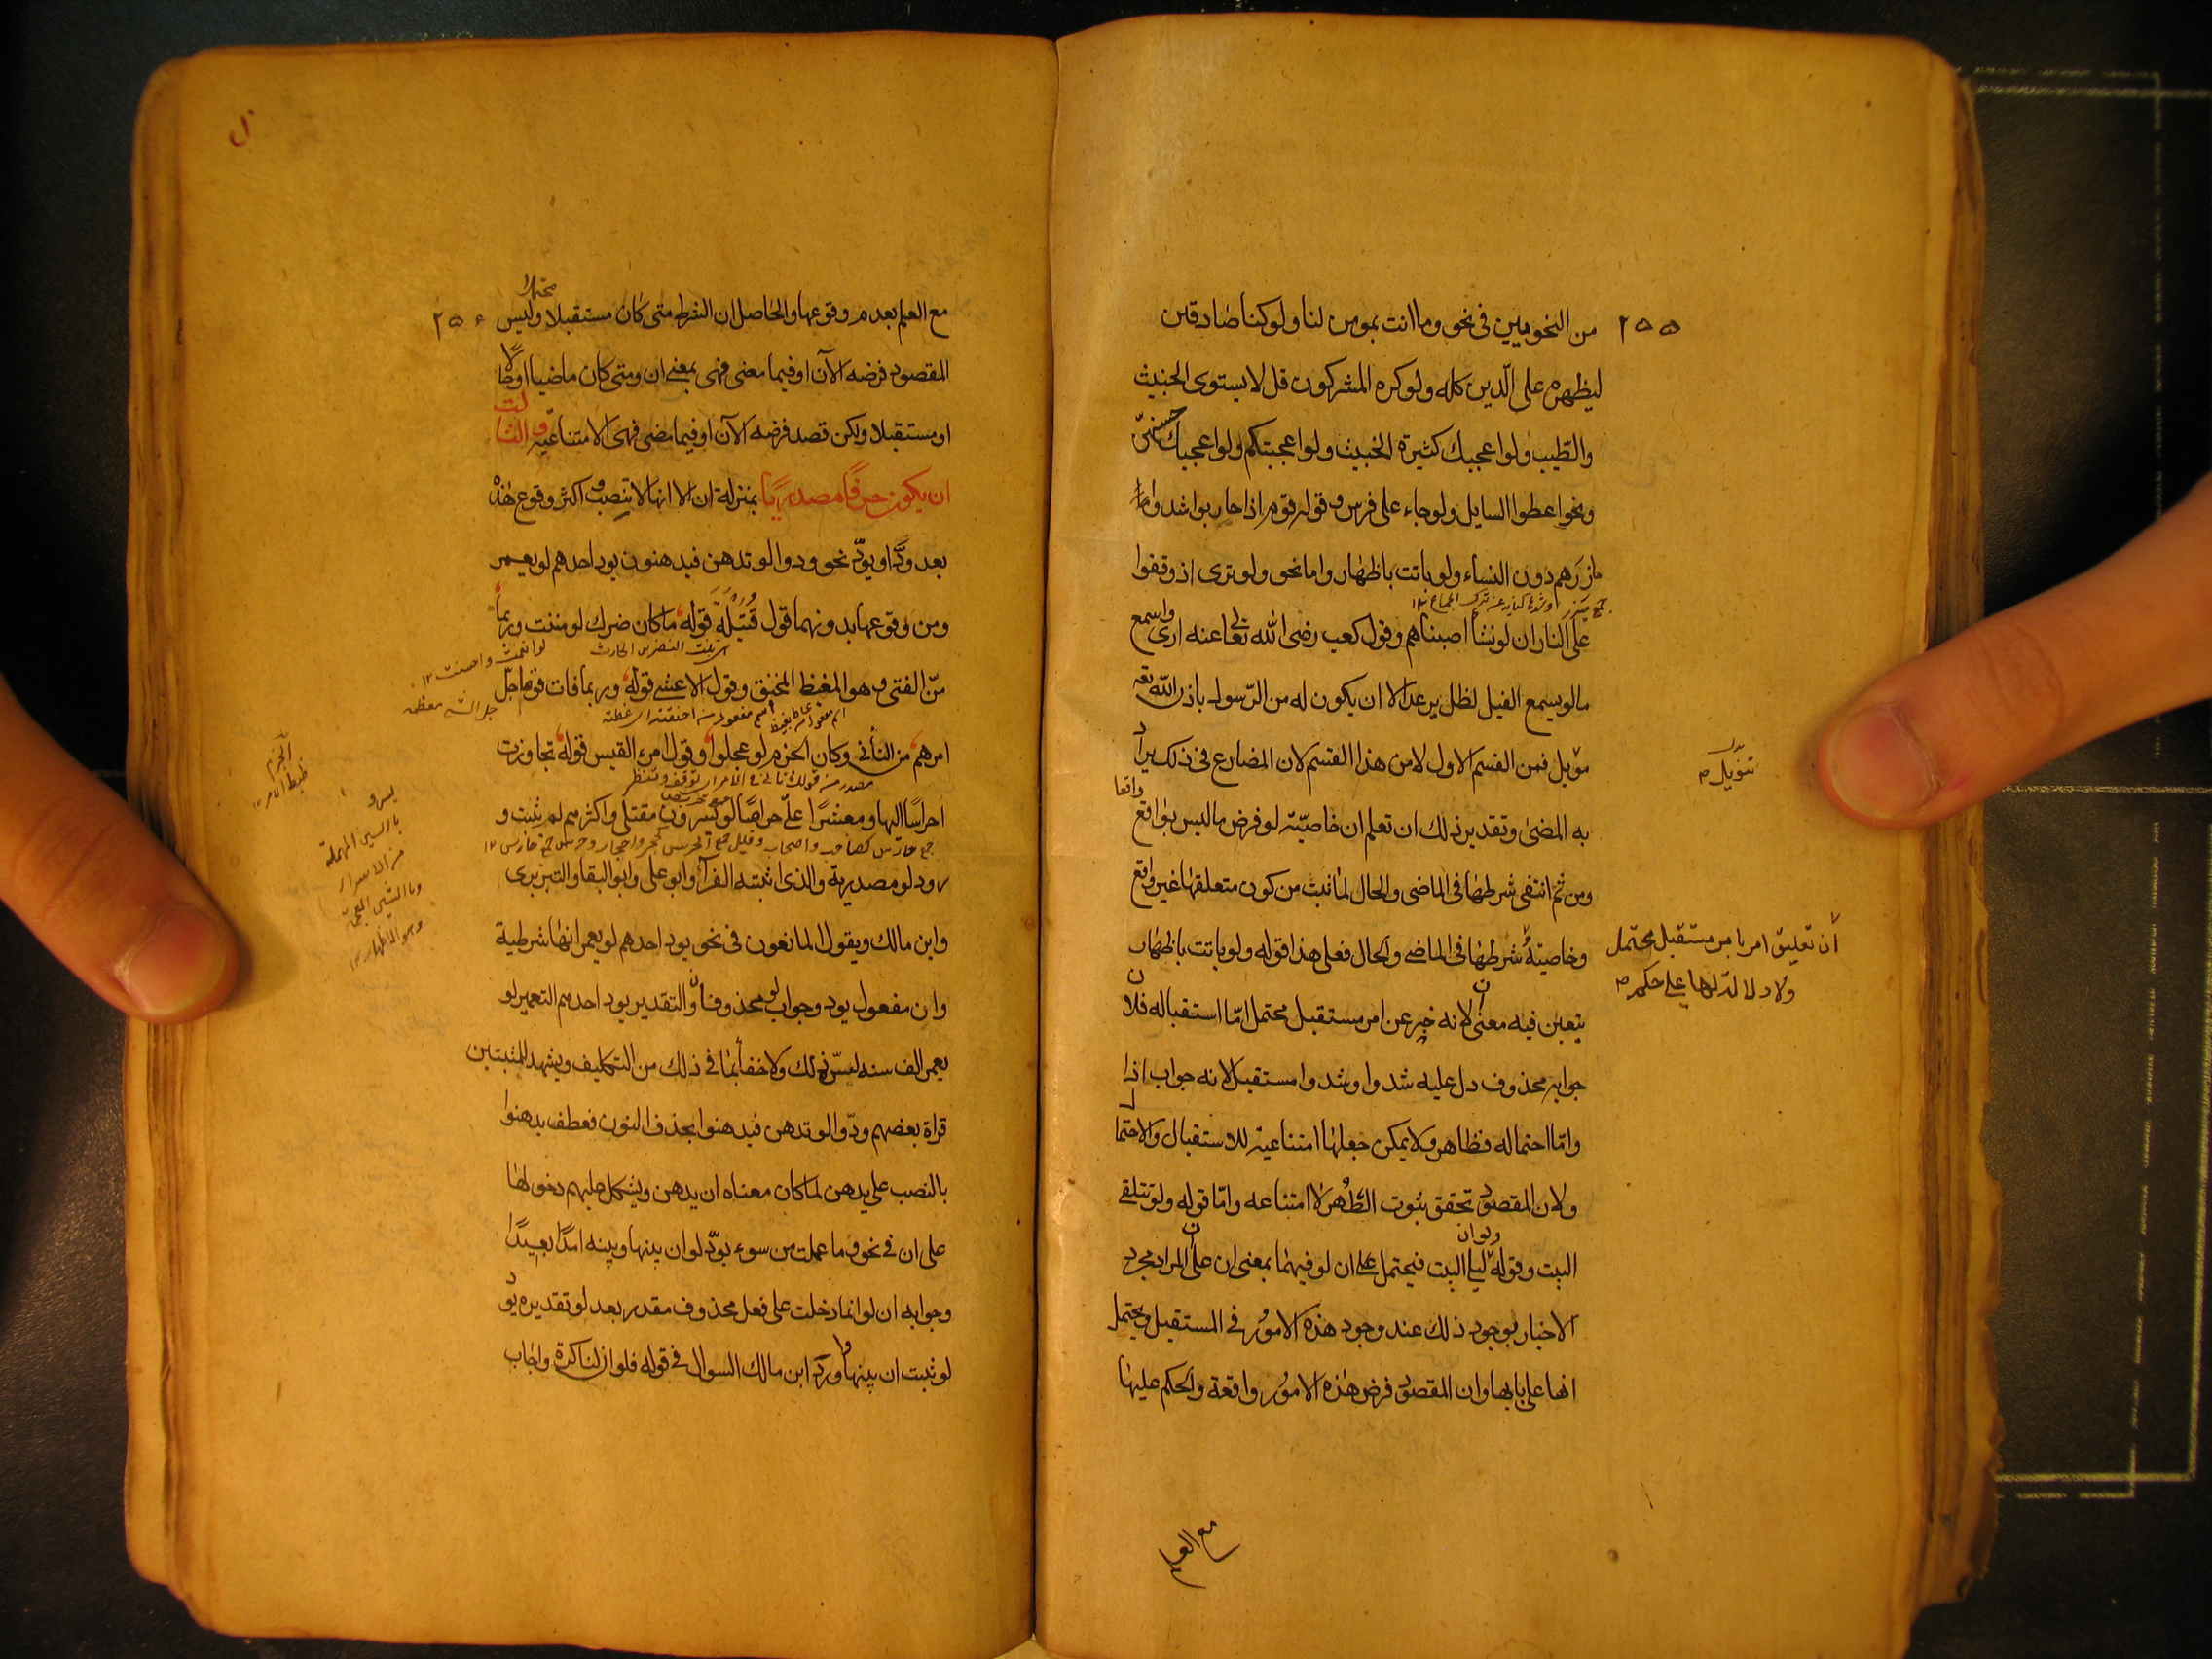 ٢٥٥
من النحويين فى نحو وما انت بمومن لنا ولو كنا صادقين
ليظهره على الدّين كله ولو كره المشركون قل لا يستوى الخبيث
والطّيب ولو اعجبك كثيرة الخبيث ولو اعجبتكم ولو اعجبك حسنهنّ
ونحو اعطوا السايل ولو جاء على فرس وقوله قوم اذا حاربوا شدوا
مازرهم دون النساء ولو باتت باظهار واما نحو ولو ترى اذ وقفوا
على النار ان لو نشأ اصبناهم وقول كعب رضى الله تعالى عنه ارى واسمع
مالو يسمع الفيل لظل يرعد الا ان يكون له من الرّسول باذن اللّه
موٓبل فمن القسم الاول لا من هذا القسم لان المضارع فى ذلك يراد
تنويل
به المضى وتقدير ذلك ان تعلم ان خاصيّة لو فرض ما ليس بواقع واقعا
ومن ثم انتفى شرطها فى الماضى والحال لما ثبت من كون متعلقها غير واقع
وخاصية شرطها فى الماضى والحال فعلى هذا قوله ولو باتت باظهار
ان تعليق امر بامر مستقبل محتمل
ولا دلالة لها على حكم
يتعين فيه معنى ان لانه خبر عن امر مستقبل محتمل امّا استقباله فلان
جوابه محذوف دل عليه شدوا وشدوا مستقبل لانه جواب اذا
وامّا احتماله فظاهر ولا يمكن جعلها امتناعية للاستقبال والاحتمال
ولان المقصود تحقق ثبوت الطّهر لا امتناعه وامّا قوله ولو تلتقى
البيت وقوله ولو ان ليلى البيت فيحتمل ان لو فيهما بمعنى ان على ان المراد مجرد
الاخبار بوجود ذلك عند وجود هذه الامور فى المستقبل ويحتمل
انها على بابها وان المقصود فرض هذه الامور واقعة والحكم عليها
مع العلم
ل
٢٥٦
مع العلم بعدم وقوعها والحاصل ان الشرط متى كان مستقبلا محتملا وليس
المقصود فرضه الآن او فيما معنى فهى بمعنى ان ومتى كان ماضيا او حالا
او مستقبلا ولكن قصد فرضه الآن او فيما مضى فهى الامتناعيّة والثالث
ان يكون حرفًا مصدريًا بمنزلة ان الا انها لا تنصب واكثر وقوع هٰذه
بعد ودّ او يودّ نحو ودوا لو تدهن فيدهنون يود احدهم لو يعمر
ومن وقوعها بدونهما قول قُتَيلة قوله ما كان ضرك لو مننت وربما
اى بنت النضر بن الحارث
لو انعمت واحسنت ١٢
منّ الفتى وهو المغيظ المحنق وقول الاعشى قوله وربما فات قوما جلّ
جل الشئ معظمه
امرهم من التأنى وكان الحزم لو عجلوا وقول امرء القيس قوله تجاوزت
الحزم
ضبط الامر ١٢
احراسًا اليها ومعشرًا علىّ حراصًا لو يسرون مقتلى واكثرهم لم يثبت و
يسرو
بالسين المهملة
من الاسرار
وبالشين المعجمة
وهو الاظهار ١٢
رود لو مصدرية والذى اثبته الفرآ وابو على وابو البقا والتبريزى
وابن مالك ويقول المانعون فى نحو يود احدهم لو يعمر انها شرطية
وان مفعول يود وجواب لو محذوفان والتقدير يود احدهم التعمير لو
يعمر الف سنه ليسّره ذلك ولا خفأ بما فى ذلك من التكليف ويشهد للمثبتين
قراة بعضهم ودّوا لو تدهن فيدهنوا بحذف النون فعطف يدهنوا
بالنصب على يدهن لما كان معناه ان يدهن ويشكل عليهم دخولها
على ان فى نحو وما عملت من سوء يودّ لو ان بينها وبينه امدًا بعيدًا
وجوابه ان لو انما دخلت على فعل محذوف مقدر بعد لو تقديره يود
لو ثبت ان بينها واورد ابن مالك السوال فى قوله فلو ان لنا كرة واجاب